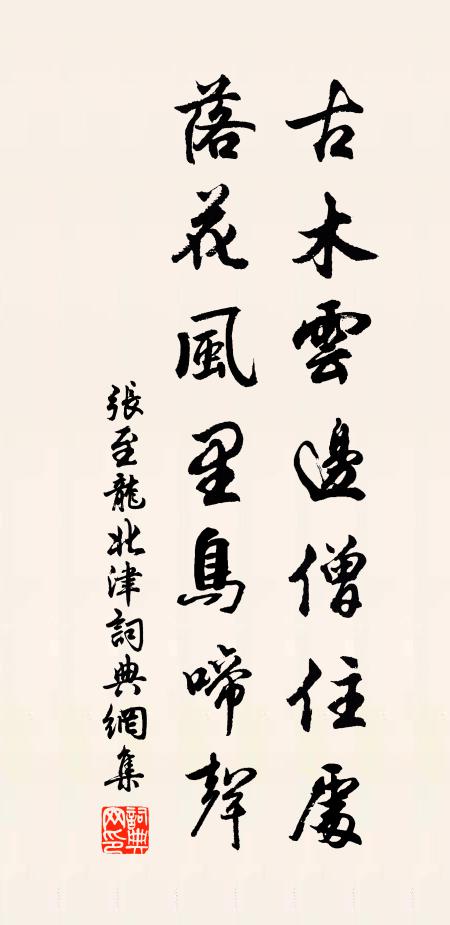 古木雲邊僧住處
落花風里鳥啼聲
張至龍北津詞典網集
詞典網印